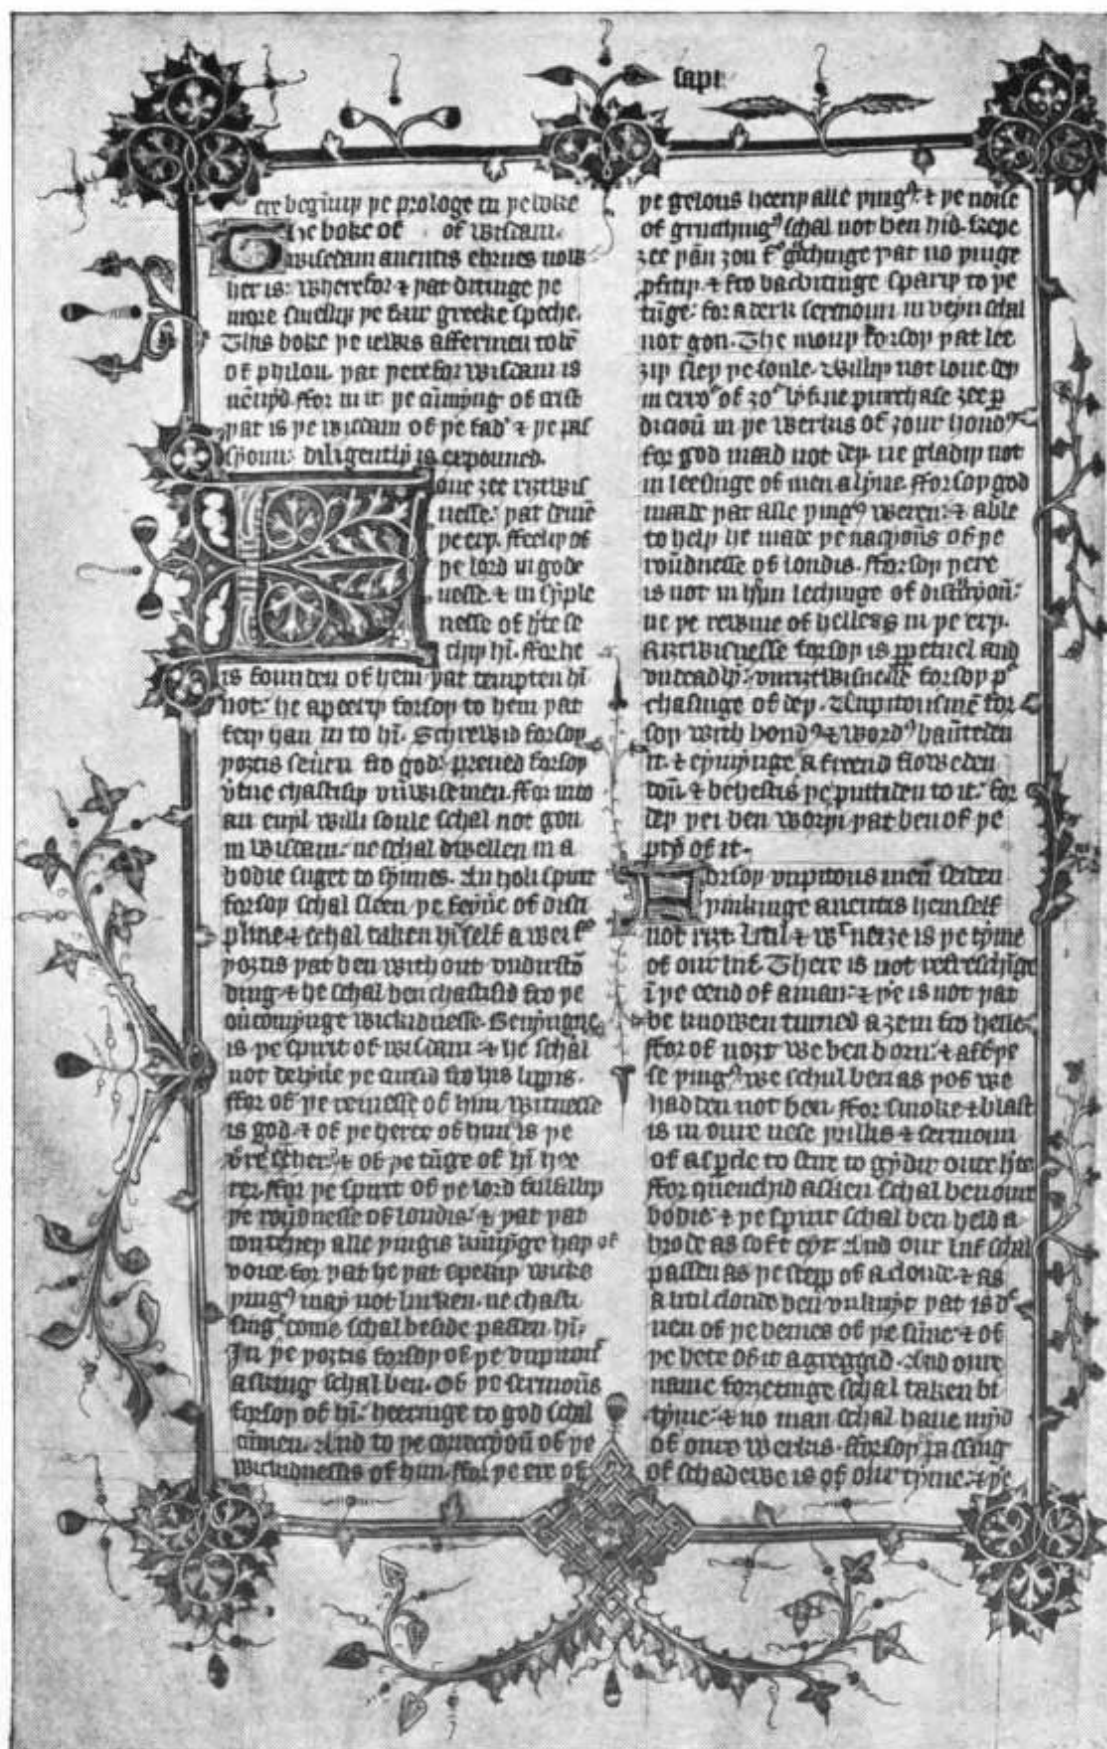 sapi
ere beginniþ þe prologe in þe boke
The boke of of wisdam
wisedam anentis ebrues now
her is: wherefor ⁊ þat ditinge þe
more smelliþ þe fair greeke speche.
This boke þe iewis affermen to bē
of philon. þat þerefor wisdam is
nēnyd. ffor in it þe cūmyng of crist
þat is þe wisdam of þe fad' ⁊ þe pas
syoun: diligently is expouned.
Loue ȝee riȝtwis
nesse: þat demē
þe erþ. ffeeliþ of
þe lord in gode
nesse. ⁊ in symple
nesse of h'te se
chiþ hī. ffor he
is founden of hem þat tempten hī
not: he apeeriþ forsoþ to hem þat
feiþ han in to hī. Schrewid forsoþ
þoȝtis seuen fro god: preued forsoþ
v'tue chastisiþ vnwise men. ffor into
an euyl willi soule schal not gon
in wisdam: ne schal dwellen in a
bodie suget to synnes. An holi spirit
forsoþ schal fleen þe feyne of disci
pline ⁊ schal taken hīself awei f°
þoȝtis þat ben with out vndirstō
ding ⁊ he schal ben chastisid fro þe
ou'comynge wickidnesse. Benyngne
is þe spirit of wisdam: ⁊ he schal
not delyue þe cursid fro his lippis.
ffor of þe reines of him witnesse
is god. ⁊ of þe herte of him is þe
serchere ⁊ of þe tūge of hī hee
rer. ffor þe spirit of þe lord fulfilliþ
þe roūdnesse of londis: ⁊ þat þat
conteneþ alle þingis kūnyge haþ of
voice. for þat he þat spekiþ wicke
þing⁹ may not lurken. ne chasti
sing come schal beside passen hī.
In þe þoȝtis forsoþ of þe vnpitous
asking schal ben. Of þe sermoūs
forsoþ of hī: heeringe to god schal
cūmen. And to þe correccyoū of þe
wickidnessis of him. ffor þe ere of
þe gelous heeriþ alle þing⁹: ⁊ þe noise
of grucching⁹ schal not ben hid. Kepe
ȝee þān ȝou f° g'cchinge þat no þinge
profitiþ. ⁊ fro bacbitinge spariþ to þe
tūge: for a derk sermoun in veyn schal
not gon. The mouþ forsoþ þat lee
ȝiþ sleeþ þe soule. Williþ not loue deþ
in erro' of ȝo' lyf: ne purchase ȝee p
dicioū in þe werkis of ȝour hond⁹
for god maad not deþ. ne gladiþ not
in leesinge of men alyue. fforsoþ god
made þat alle þing⁹ weren: ⁊ able
to helþ he made þe nacyoūs of þe
roūdnesse of londis. fforsoþ þere
is not in hym lechinge of distryoū:
ne þe rewme of helles in þe erþ.
A riȝtwisnesse forsoþ is ppetuel and
vndeadly: vnriȝtwisnesse forsoþ p'
chasinge of deþ. Vnpitous mē for
soþ with hond⁹ ⁊ word⁹ haūteden
it. ⁊ eymynge a freend floweden
doū. ⁊ behestis þe puttiden to it: for
deþ þei ben worþi þat ben of þe
pty of it.
Forsoþ vnpitous men seiden
þinkinge anentis hemself
not riȝt. Litil ⁊ wt noiȝe is þe tyme
of our life. There is not refreschīge
ī þe eend of a man: ⁊ þ'e is not þat
be knowen turned aȝein fro helle:
ffor of noȝt we ben born: ⁊ aft' þe
se þing⁹ we schul ben as þof we
hadden not ben. ffor smoke ⁊ blast
is in oure nese þrillis ⁊ sermoun
of a sperle to stire to gydir oure h'te
ffor quenchid asken schal ben our
bodie: ⁊ þe spirit schal ben held a
brode as soft eyr. And our life schal
passen as þe step of a cloude. ⁊ as
a litil cloude ben vnknyt þat is d'
uen of þe bemes of þe sūne ⁊ of
þe hete of it agreggid. And oure
name forȝetinge schal taken bi
tyme: ⁊ no man schal haue mȳd
of oure werkis. fforsoþ passing
of schadewe is of our tyme: ⁊ þ'e